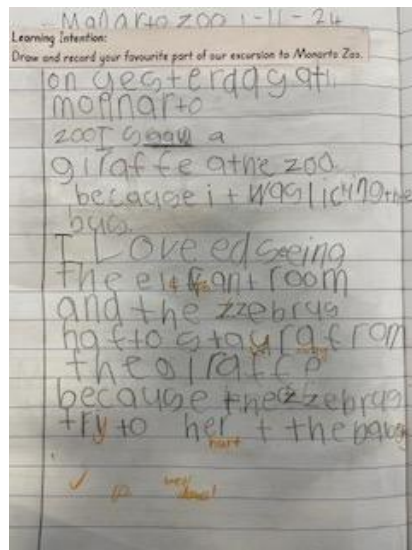 Manarto zoo 1-11-24
Learning Intention:
Draw and record your favourite part of our excursion to Monarto Zoo.
on yesterday at
monnarto
zoo I saw a
giraffe athe zoo.
becaguse it was licing the
bus.
I Loveed seeing
the room
and the zzebras
hafto stay from
the giraffe
because thezzebras
try to her t the baby
hurt
well done!